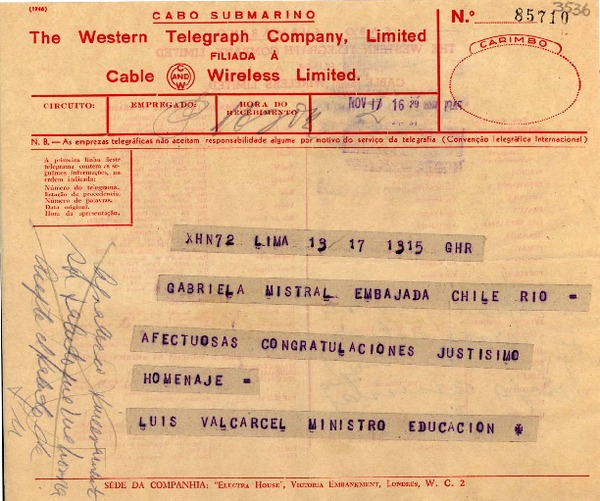 (1946)
CABO SUBMARINO
The Western Telegraph Company, Limited
FILIADA À
Cable AND Wireless Limited.
N.º 85710
3536
CARIMBO
CIRCUITO:
EMPREGADO:
HORA DO RECEBIMENTO
NOV 17 16 29 1945
N. B. — As emprezas telegráficas não aceitam responsabilidade alguma por motivo do serviço da telegrafia (Convenção Telegráfica Internacional)
A primeira linha deste
telegrama contem as se-
guintes informações, na
ordem indicada:
Número do telegrama.
Estação de procedencia.
Número de palavras.
Data original.
Hora da apresentação.
XHN72 LIMA 13 17 1315 GHR
GABRIELA MISTRAL EMBAJADA CHILE RIO =
AFECTUOSAS CONGRATULACIONES JUSTISIMO
HOMENAJE =
LUIS VALCARCEL MINISTRO EDUCACION *
SÉDE DA COMPANHIA: "ELECTRA HOUSE", VICTORIA EMBANKMENT, LONDRES, W. C. 2